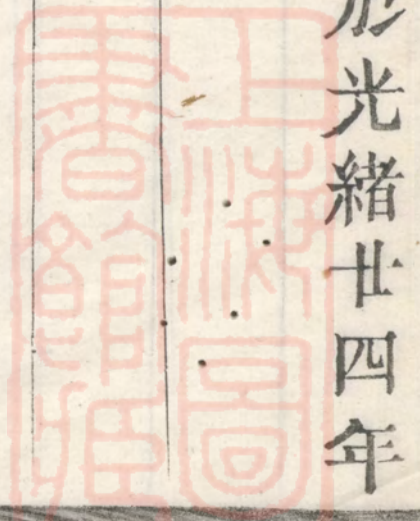 光緒廿四年
上海圖
書館藏